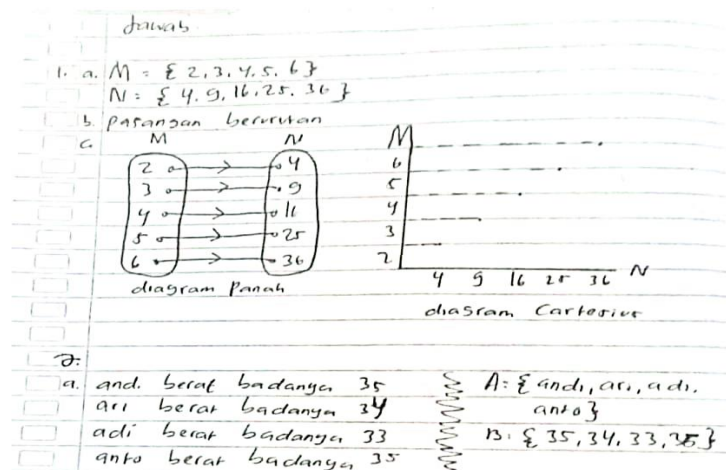 Jawab
1. a. M = { 2, 3, 4, 5, 6 }
N = { 4, 9, 16, 25, 36 }
b. Pasangan berurutan
c.
M N
2 4
3 9
4 16
5 25
6 36
diagram Panah
M
6
5
4
3
2
4 9 16 25 36 N
diagram Cartesius
2.
a. andi berat badanya 35
ari berat badanya 34
adi berat badanya 33
anto berat badanya 35
A = { andi, ari, adi,
anto }
B : { 35, 34, 33, 35 }